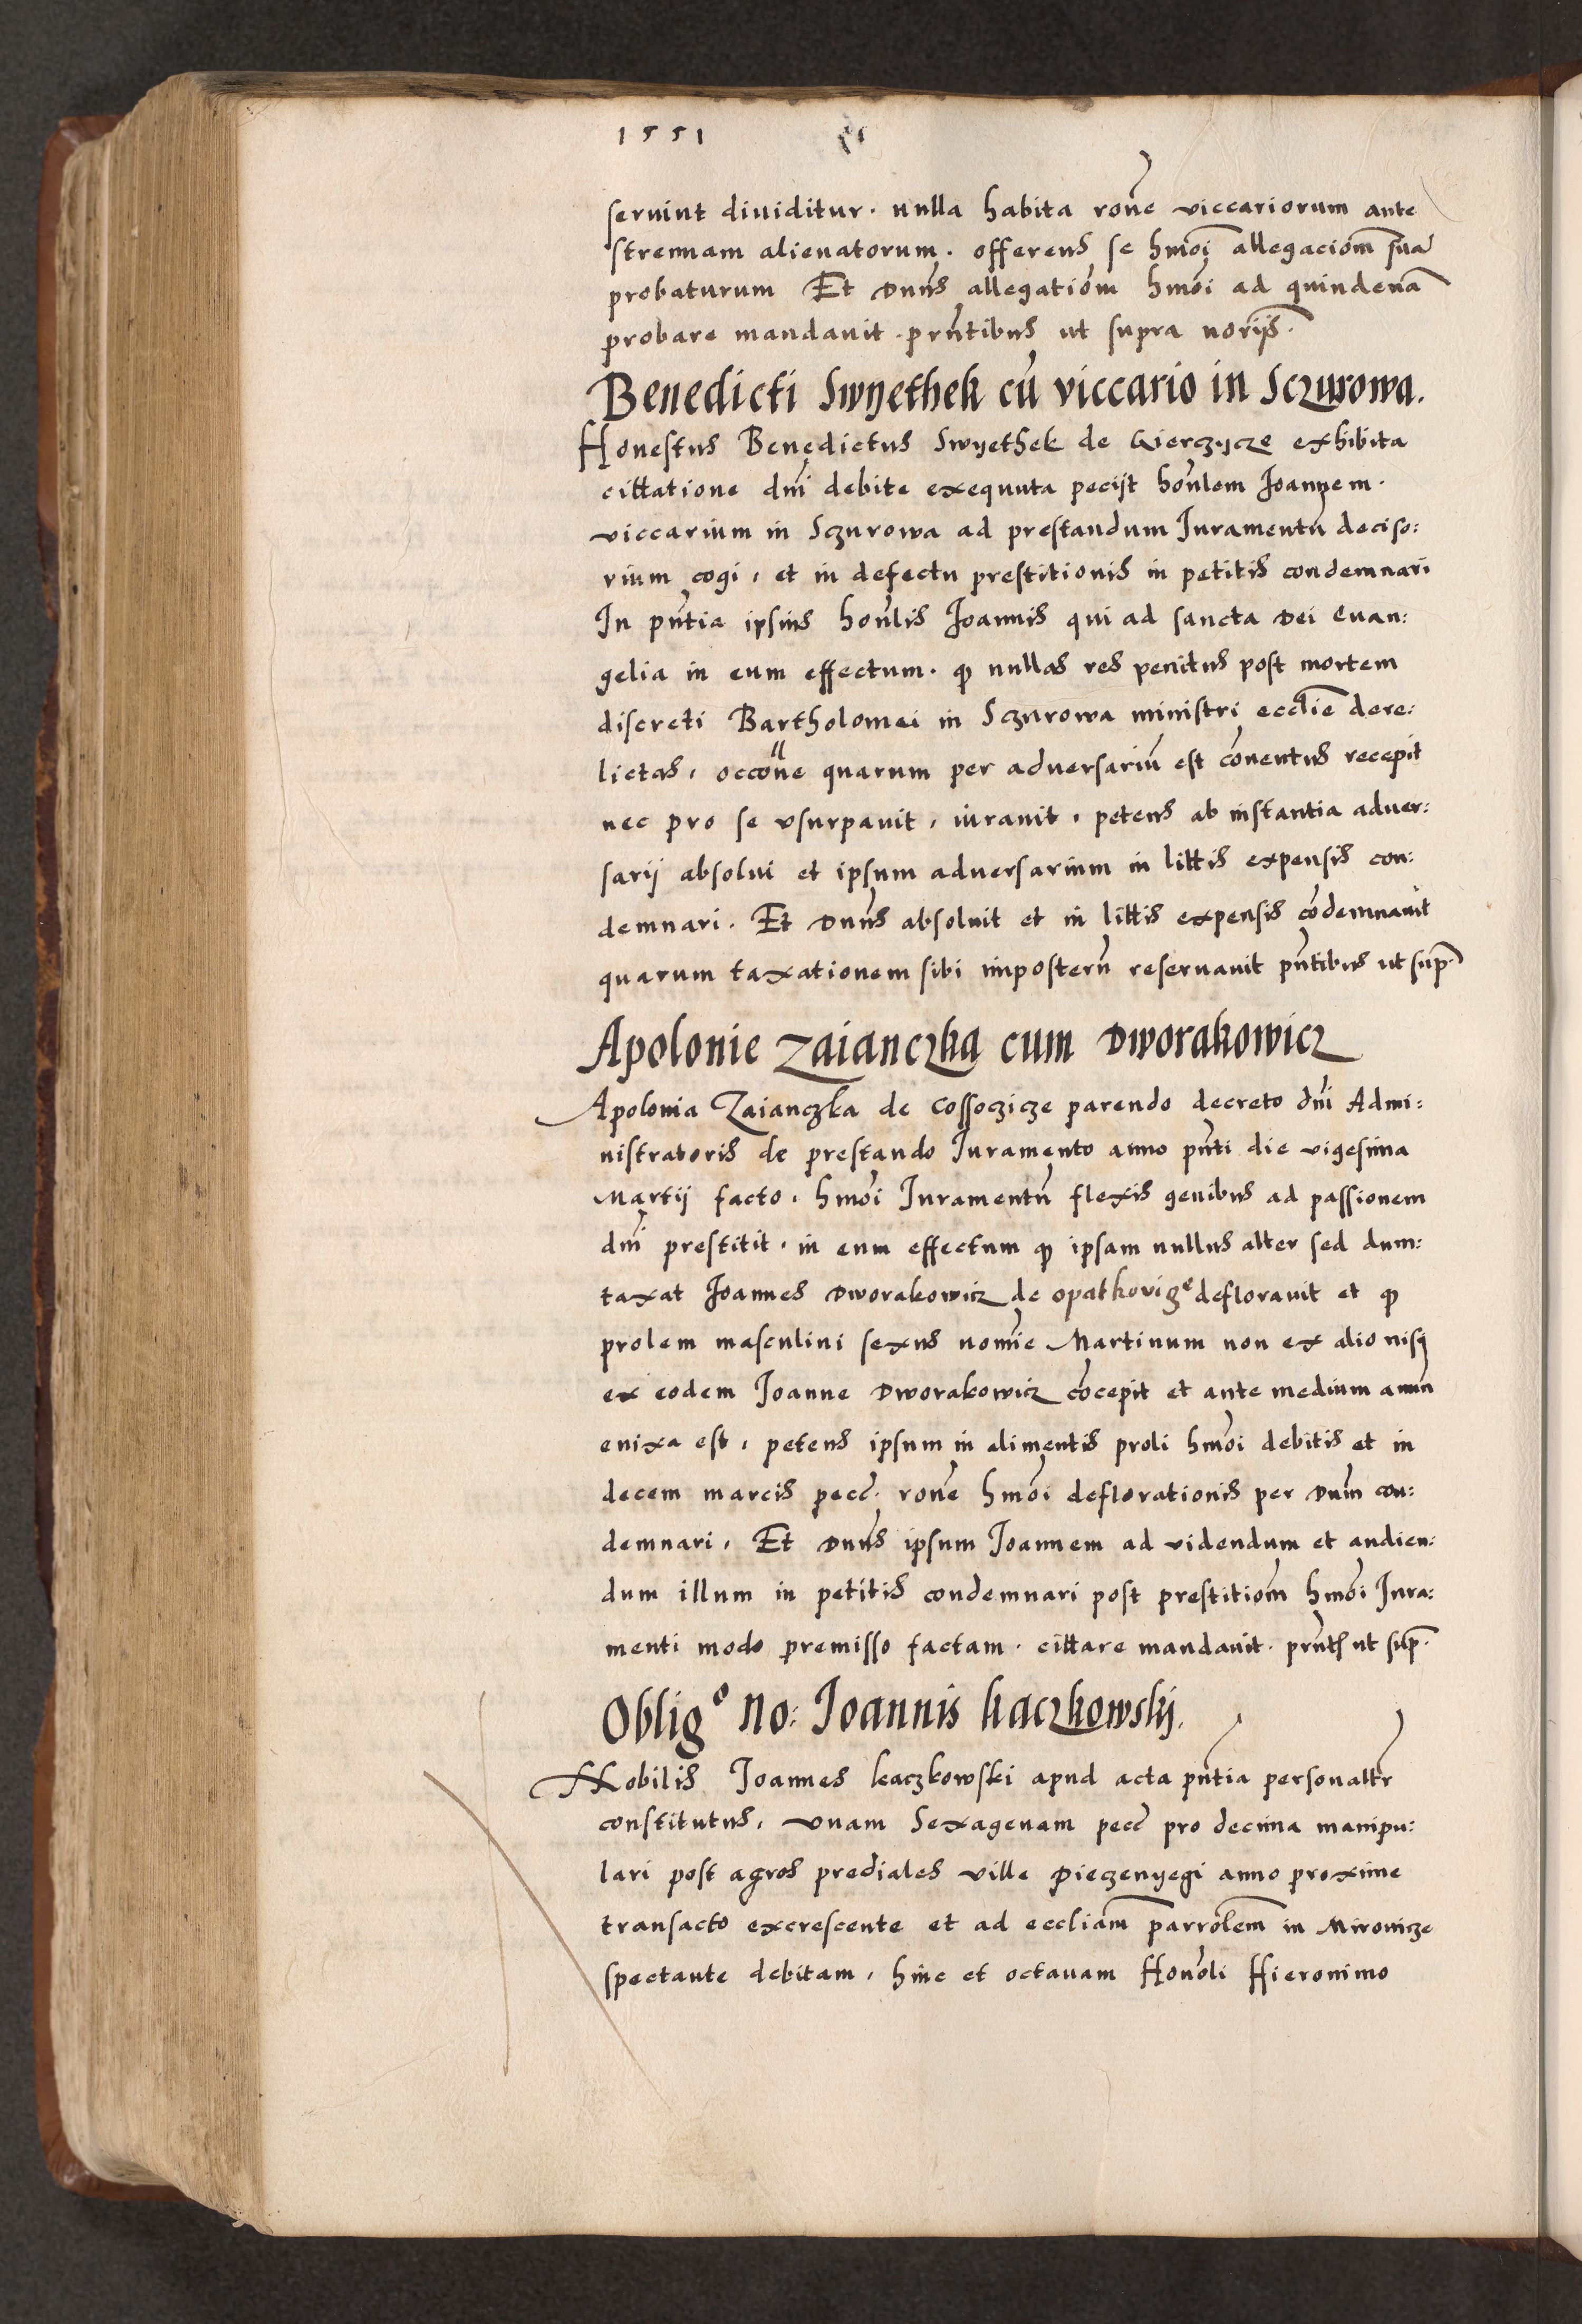 1551
seruiut diuiditur. nulla habita rone viccariorum ante
strennam alienatorum. offerens se hmoi allegaciom sua
probaturum Et Dnus allegatiom hmoi ad quindena
probare mandauit. prntibus ut supra norijs.
Benedicti Swyethek cu viccario in Sczurowa.
Honestus Benedictus Swyethek de Gierczycze exhibita
cittatione dni debite exequuta pecijt honlem Joannem.
viccarium in Sczurowa ad prestandum Juramentu deciso:
rium cogi, et in defectu prestitionis in petitis condemnari
In pntia ipsius honlis Joannis qui ad sancta Dei Euan:
gelia in eum effectum. q nullas res penitus post mortem
discreti Bartholomei in Sczurowa ministri ecclie dere:
lictas, occone quarum per adversariu est conentus recepit
nec pro se vsurpauit, iurauit, petens ab instantia aduer:
sarij absolui et ipsum adversarium in littis expensis con:
demnari. Et Dnus absoluit et in littis expensis codemnauit
quarum taxationem sibi imposteru reseruauit pntibus ut sup.
Apolonie Zaianczka cum Dworakowicz
Apolonia Zaianczka de Cossoczicze parendo decreto dni Admi:
nistratoris de prestando Juramento anno pnti die vigesima
Martij facto, hmoi Juramentu flexis genibus ad passionem
dni prestitit. in eum effectum q ipsam nullus alter sed dum:
taxat Joannes Dworakowicz de opatkovige deflorauit et q
prolem masculini sexus nomie Martinum non ex alio nisi
ex eodem Joanne Dworakowicz cocepit et ante medium annu
enixa est, petens ipsum in alimentis proli hmoi debitis et in
decem marcis pecc. rone hmoi deflorationis per Dnm con:
demnari, Et Dnus ipsum Joannem ad videndum et audien:
dum illum in petitis condemnari post prestitiom hmoi Jura:
menti modo premisso factam. cittare mandauit. prntib ut sup.
Oblig° No: Joannis kaczkowskj.
Nobilis Joannes kaczkowski apud acta pntia personaltr
constitutus, vnam Sexagenam pecc pro decima manipu:
lari post agros prediales ville Pieczenyegi anno proxime
transacto excrescente et ad eccliam parrolem in Mironicze
spectante debitam, hinc et octauam Honoli Hieronimo